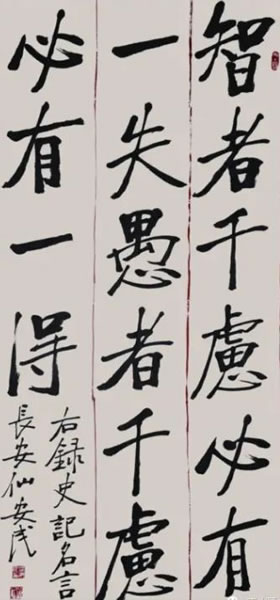 智者千慮必有
一失愚者千慮
必有一得
右録史記名言
長安仙安民